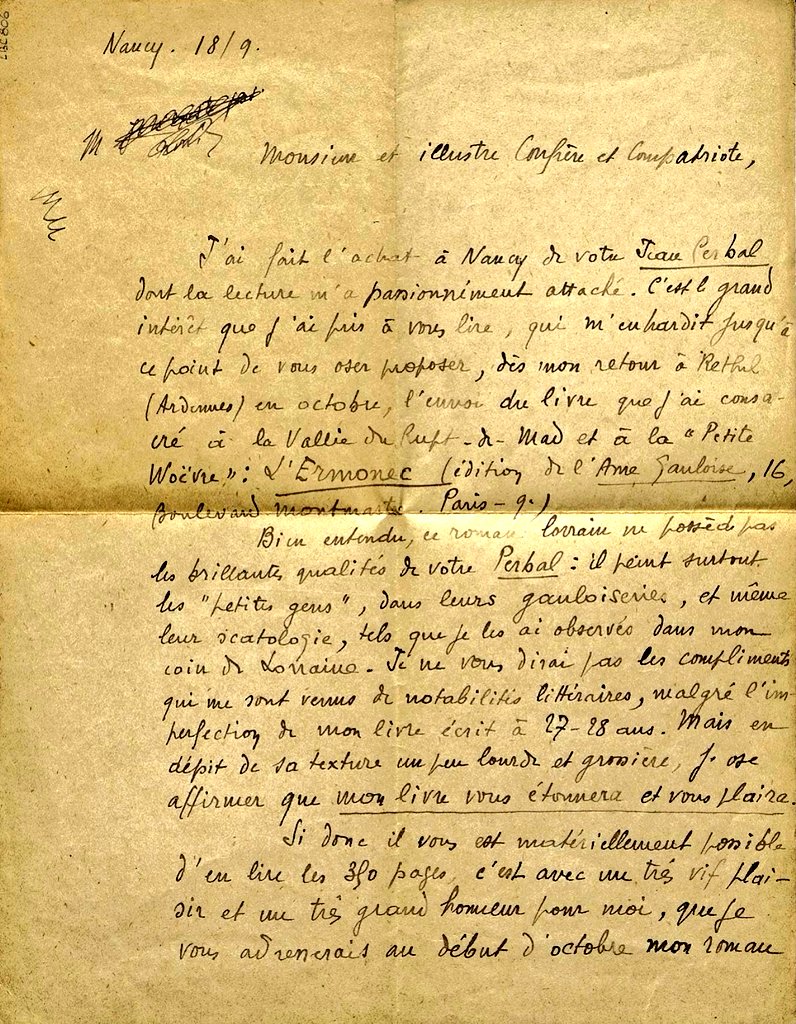 Nancy. 18/9.
M
Monsieur et illustre Confrère et Compatriote,
J'ai fait l'achat à Nancy de votre Jean Perbal
dont la lecture m'a passionnément attaché. C'est le grand
intérêt que j'ai pris à vous lire, qui m'enhardit jusqu'à
ce point de vous oser proposer, dès mon retour à Rethel
(Ardennes) en octobre, l'envoi du livre que j'ai consa-
cré à la Vallée du Rupt-de-Mad et à la "Petite
Woëvre": L'Ermonec (édition de l'Ame Gauloise, 16,
Boulevard Montmartre. Paris-9e)
Bien entendu, ce roman lorrain ne possède pas
les brillantes qualités de votre Perbal : il peint surtout
les "petites gens", dans leurs gauloiseries, et même
leur scatologie, tels que je les ai observés dans mon
coin de Lorraine. Je ne vous dirai pas les compliments
qui me sont venus de notabilités littéraires, malgré l'im-
perfection de mon livre écrit à 27-28 ans. Mais en
dépit de sa texture un peu lourde et grossière, j'ose
affirmer que mon livre vous étonnera et vous plaira.
Si donc il vous est matériellement possible
d'en lire les 350 pages, c'est avec un très vif plai-
sir et un très grand honneur pour moi, que je
vous adresserais au début d'octobre mon roman